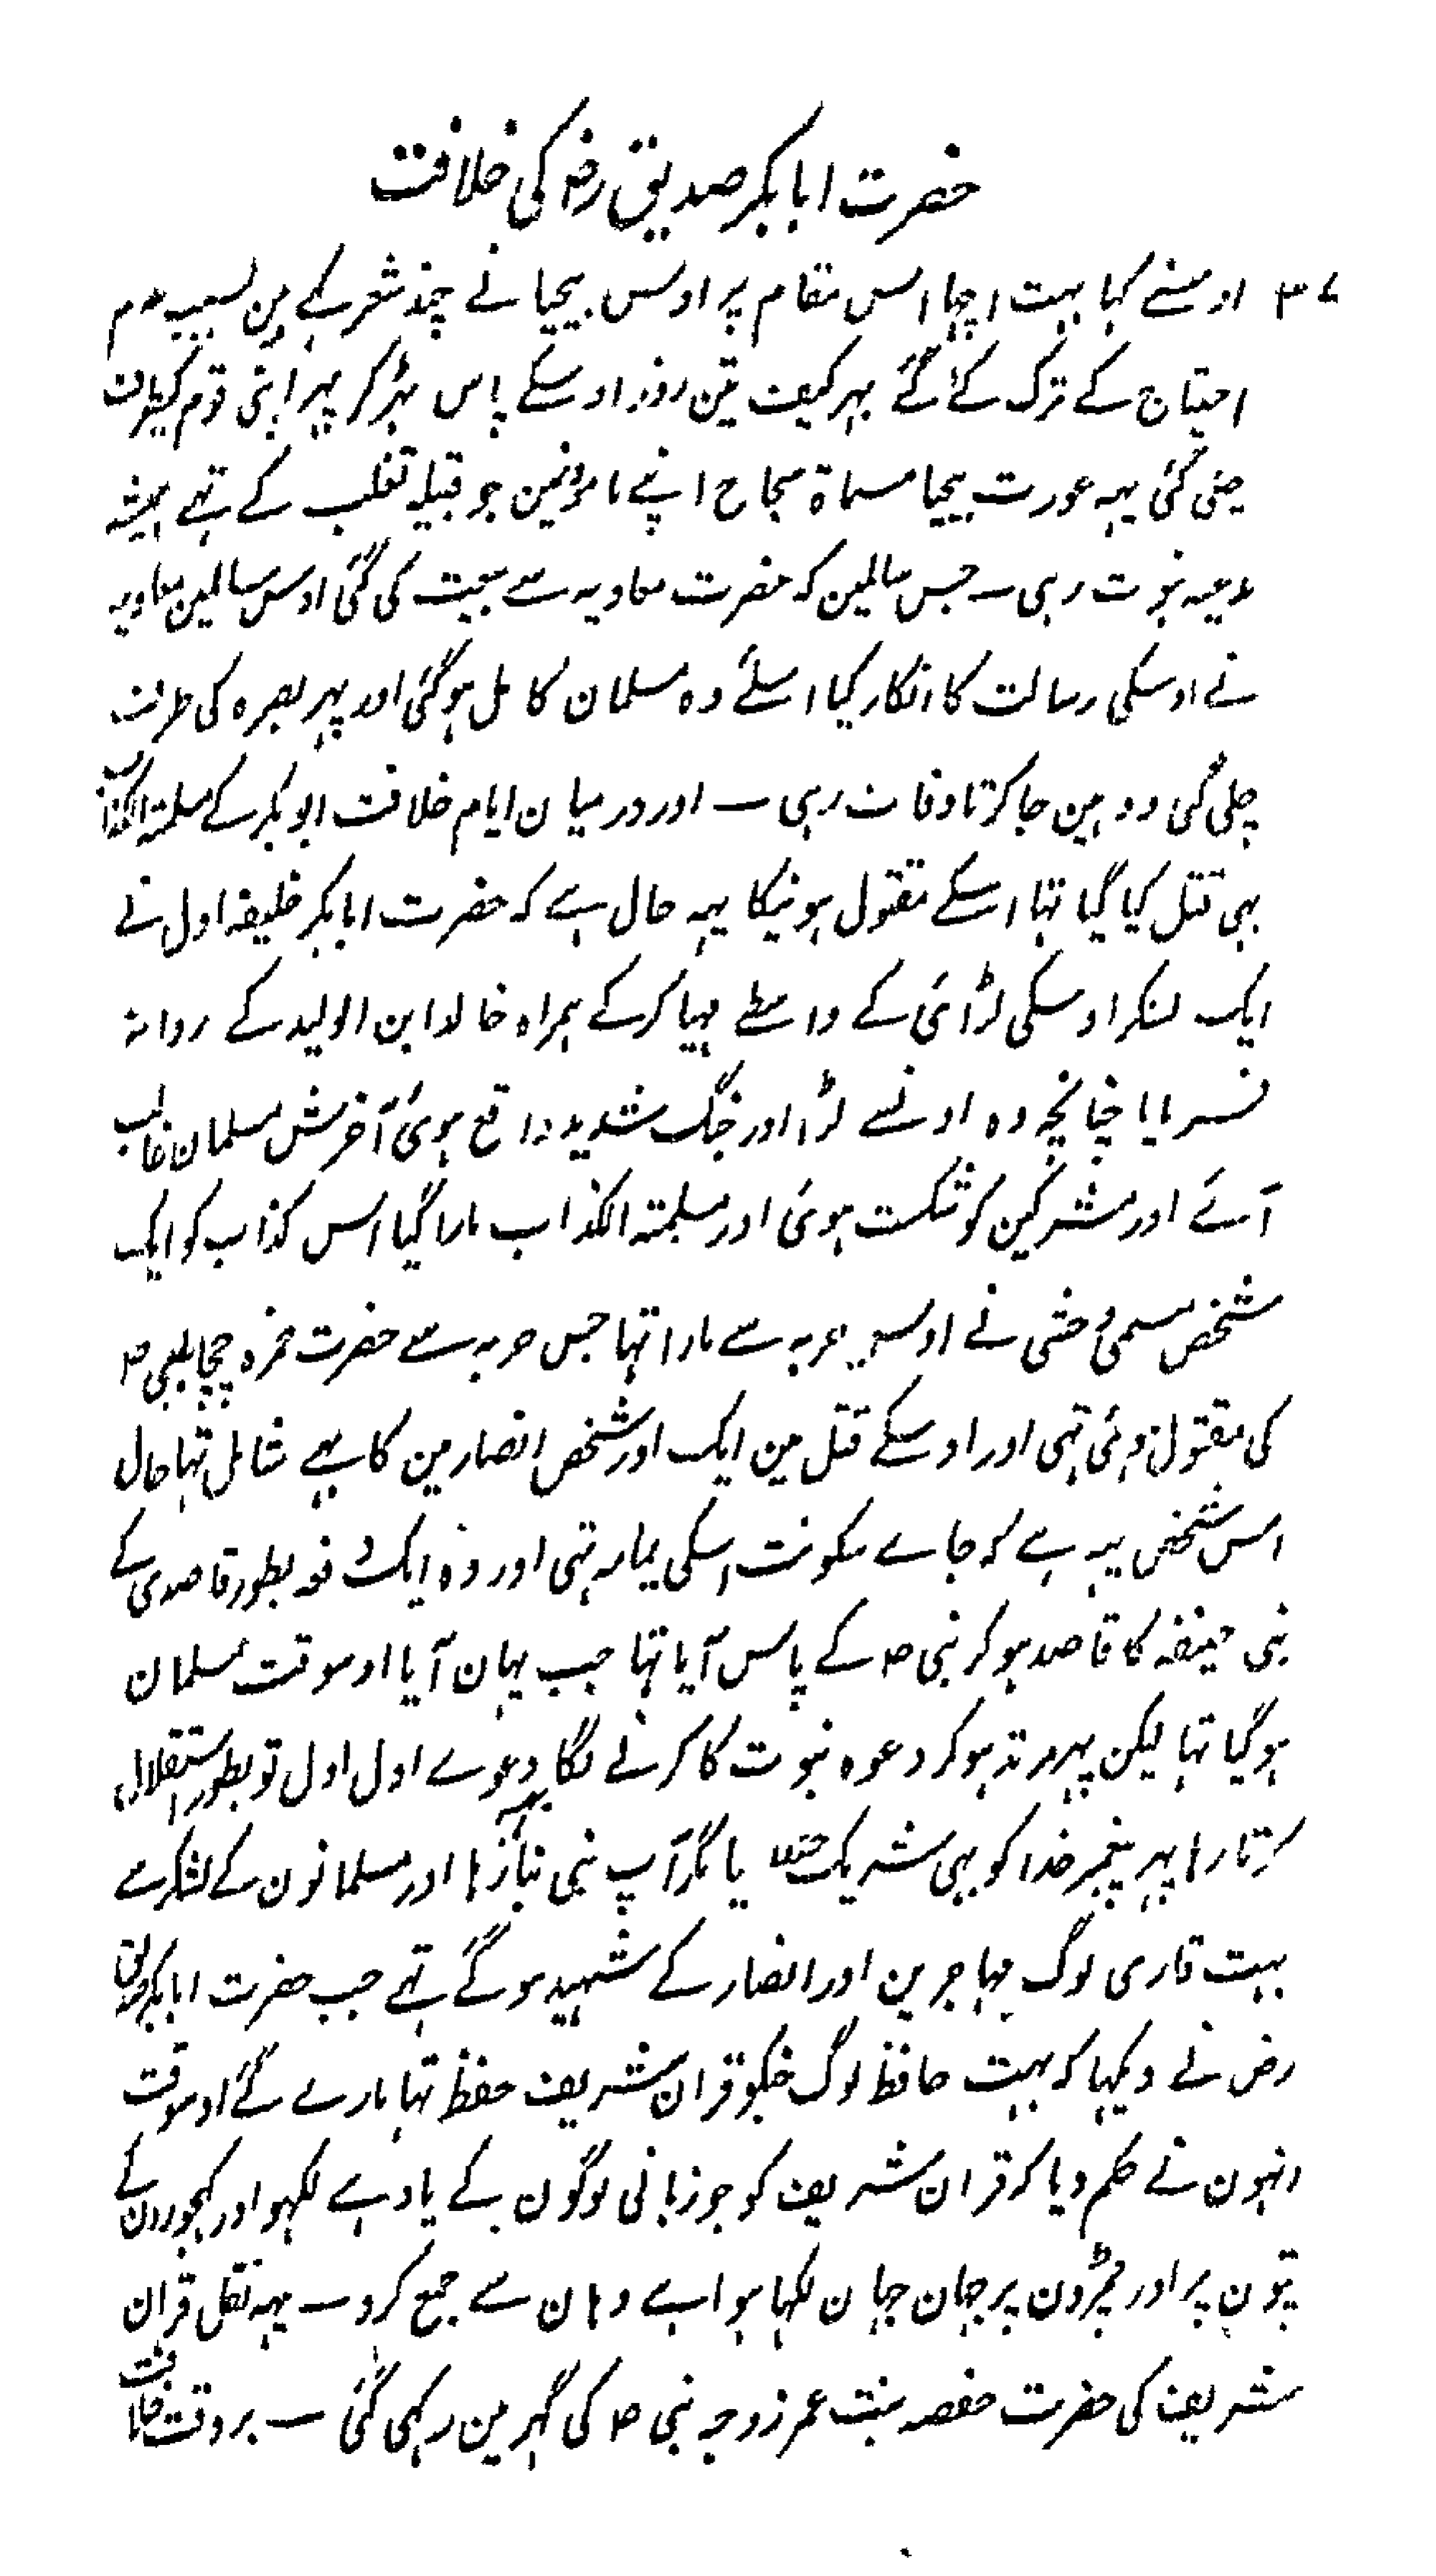 حضرت ابابکر صدیق رضہ کی خلافت
۳۷ اوسنے کہا بہت اچہا اس مقام پر اوس بیحیا نے چند شعر کہے ہین بسبب عدم
احتیاج کے ترک کئے گئے بہر کیف تین روز اوسکے پاس ٹہر کر پہر اپنی قوم کیطرف
چلی گئی یہہ عورت بیحیا مسماۃ سجاح اپنے مامؤنمین جو قبیلہ تغلب کے تہے ہمیشہ
مدعیہ نبوت رہی ـ جس سالمین کہ حضرت معاویہ سے بیعت کی گئی اوس سالمین معاویہ
نے اوسکی رسالت کا انکار کیا اسلئے وہ مسلمان کامل ہو گئی اور پہر بصرہ کی طرف
چلی گئی و وہین جا کر تا وفات رہی ـ اور درمیان ایام خلافت ابو بکر کے مسلمۃ الکذاب
بہی قتل کیا گیا تہا اسکے مقتول ہونیکا یہہ حال ہے کہ حضرت ابابکر خلیفہ اول نے
ایک لشکر اوسکی لڑائی کے واسطے مہیا کر کے ہمراہ خالد ابن الولید کے روانہ
فرمایا چنانچہ وہ اونسے لڑا اور جنگ شدید واقع ہوئی آخرش مسلمان غالب
آئے اور مشرکین کو شکست ہوئی اور مسلمتہ الکذاب مارا گیا اس کذاب کو ایک
شخص مسمی وحشی نے اوسی حربہ سے مارا تہا جس حربہ سے حضرت حمزہ چچا نبی ص
کی مقتول ہوئی تہی اور اوسکے قتل مین ایک اور شخص انصار مین کا بہے شامل تہا حال
اس شخص یہہ ہے کہ جاے سکونت اسکی یمامہ تہی اور وہ ایک دفعہ بطور قاصدی کے
بنی حنیفہ کا قاصد ہو کر نبی ص کے پاس آیا تہا جب یہان آیا اوسوقت مسلمان
ہو گیا تہا لیکن پہر مرتد ہو کر دعوہ نبوت کا کرنے لگا یہہ دعوے اول اول تو بطور استقلال
کرتا رہا پہر پیغمبر خدا کو بہی شریک یا مگر آپ نبی بنا رہا اور مسلمانون کے لشکر سے
بہت قاری لوگ مہاجرین اور انصار کے شہید ہو گے تہے جب حضرت ابابکر صدیق
رض نے دیکہا کہ بہت حافظ لوگ جنکو قران شریف حفظ تہا مارے گئے اوسوقت
انہون نے حکم دیا کہ قران شریف کو جو زبانی لوگون کے یاد ہے لکہو اور کہجورون کے
پتون پر اور چمڑون پر جہان جہان لکہا ہوا ہے وہان سے جمع کرو ـ یہہ نقل قران
شریف کی حضرت حفصہ بنت عمر زوجہ نبی ص کی گہر مین رکہی گئی ـ بروقت خلافت